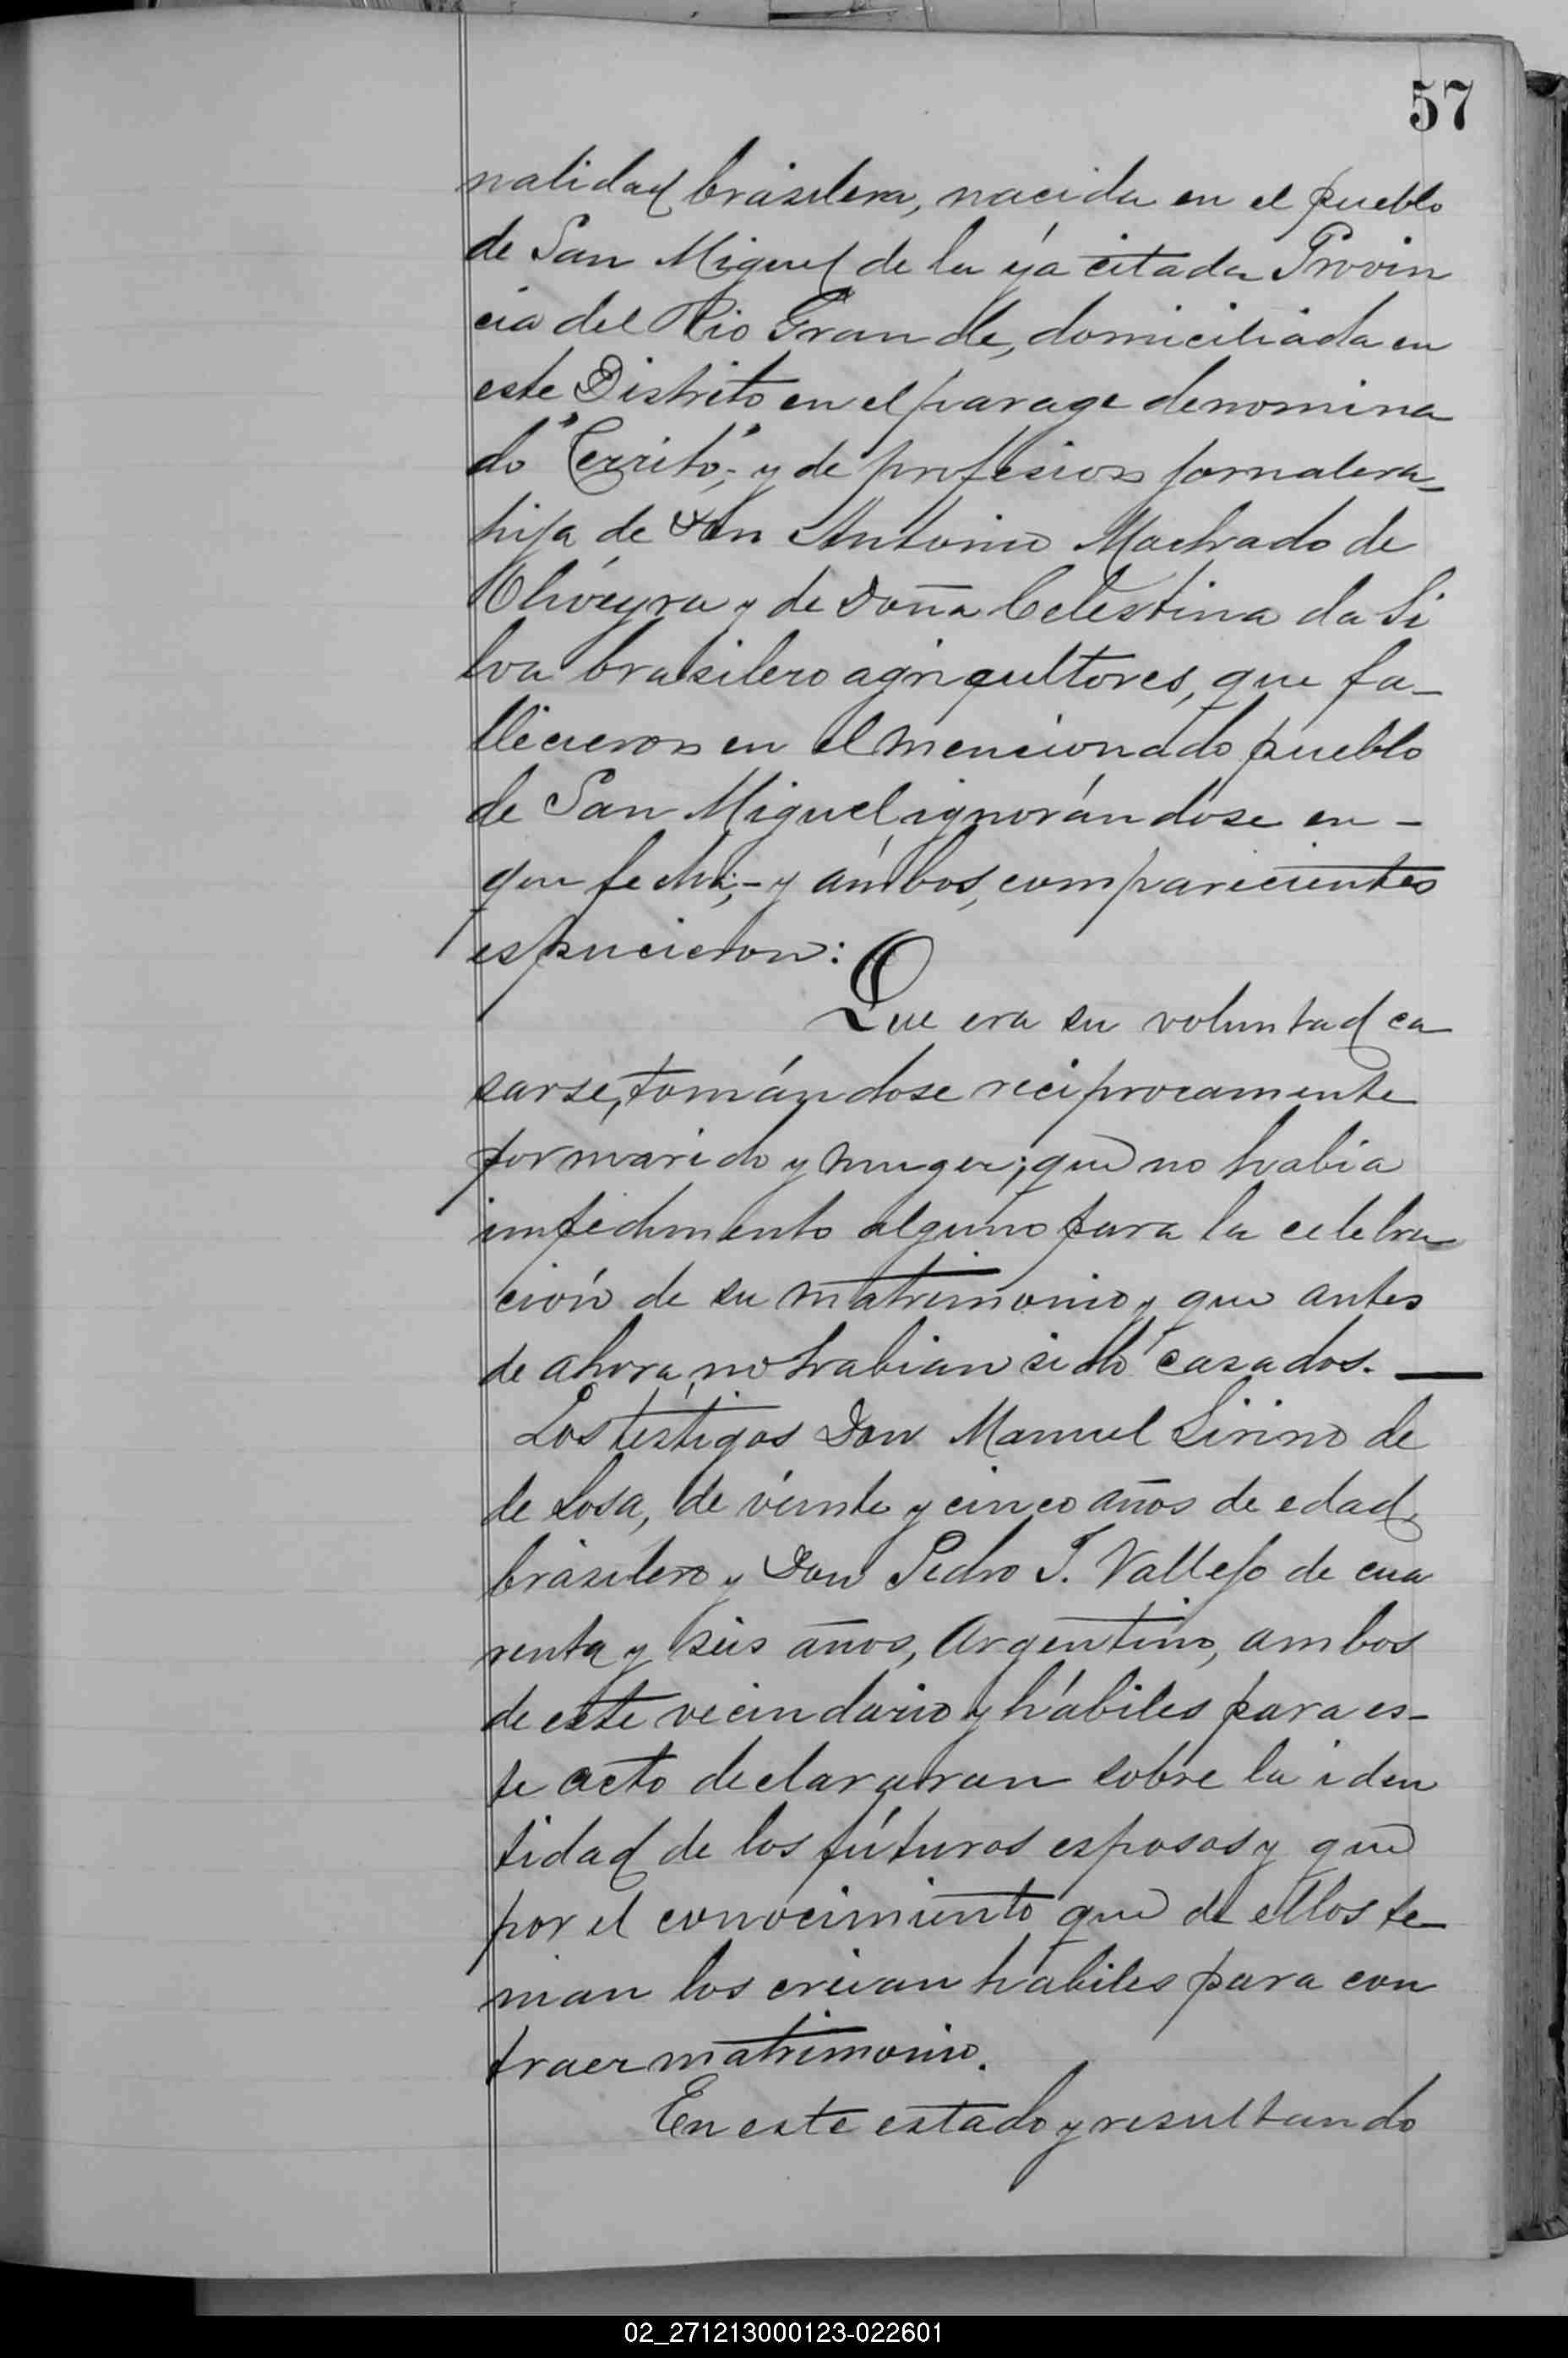 57
nalidad brasilera, nacida en el pueblo
de San Miguel de la ya citada Provin
cia del Rio Grande, domiciliada en
este Distrito en el parage denomina
do "Cerrito"; y de profesion jornalera-
hija de Don Antonio Machado de
Oliveyra y de Doña Celestina da Si
lva brasilero agricultores, que fa-
llecieron en el mencionado pueblo
de San Miguel ignorándose en-
que fecha;- y ámbos, comparecientes
espucieron:
Que era su voluntad ca
sarse, tomándose reciprocamente
por marido y muger; que no habia
impedimento alguno para la celebra
ción de su matrimonio y que antes
de ahora no habian sido casados. —
Los testigos Don Manuel Sirino de
de Sosa, de veinte y cinco años de edad,
brasilero y Don Pedro T. Vallejo de cua
renta y seis años, Argentino, ambos
de este vecindario y hábiles para es-
te acto declararan sobre la iden
tidad de los fúturos esposos y que
por el conocimiento que de ellos te-
nian los creian habiles para con
traer matrimonio.
En este estado y resultando
02_271213000123-022601